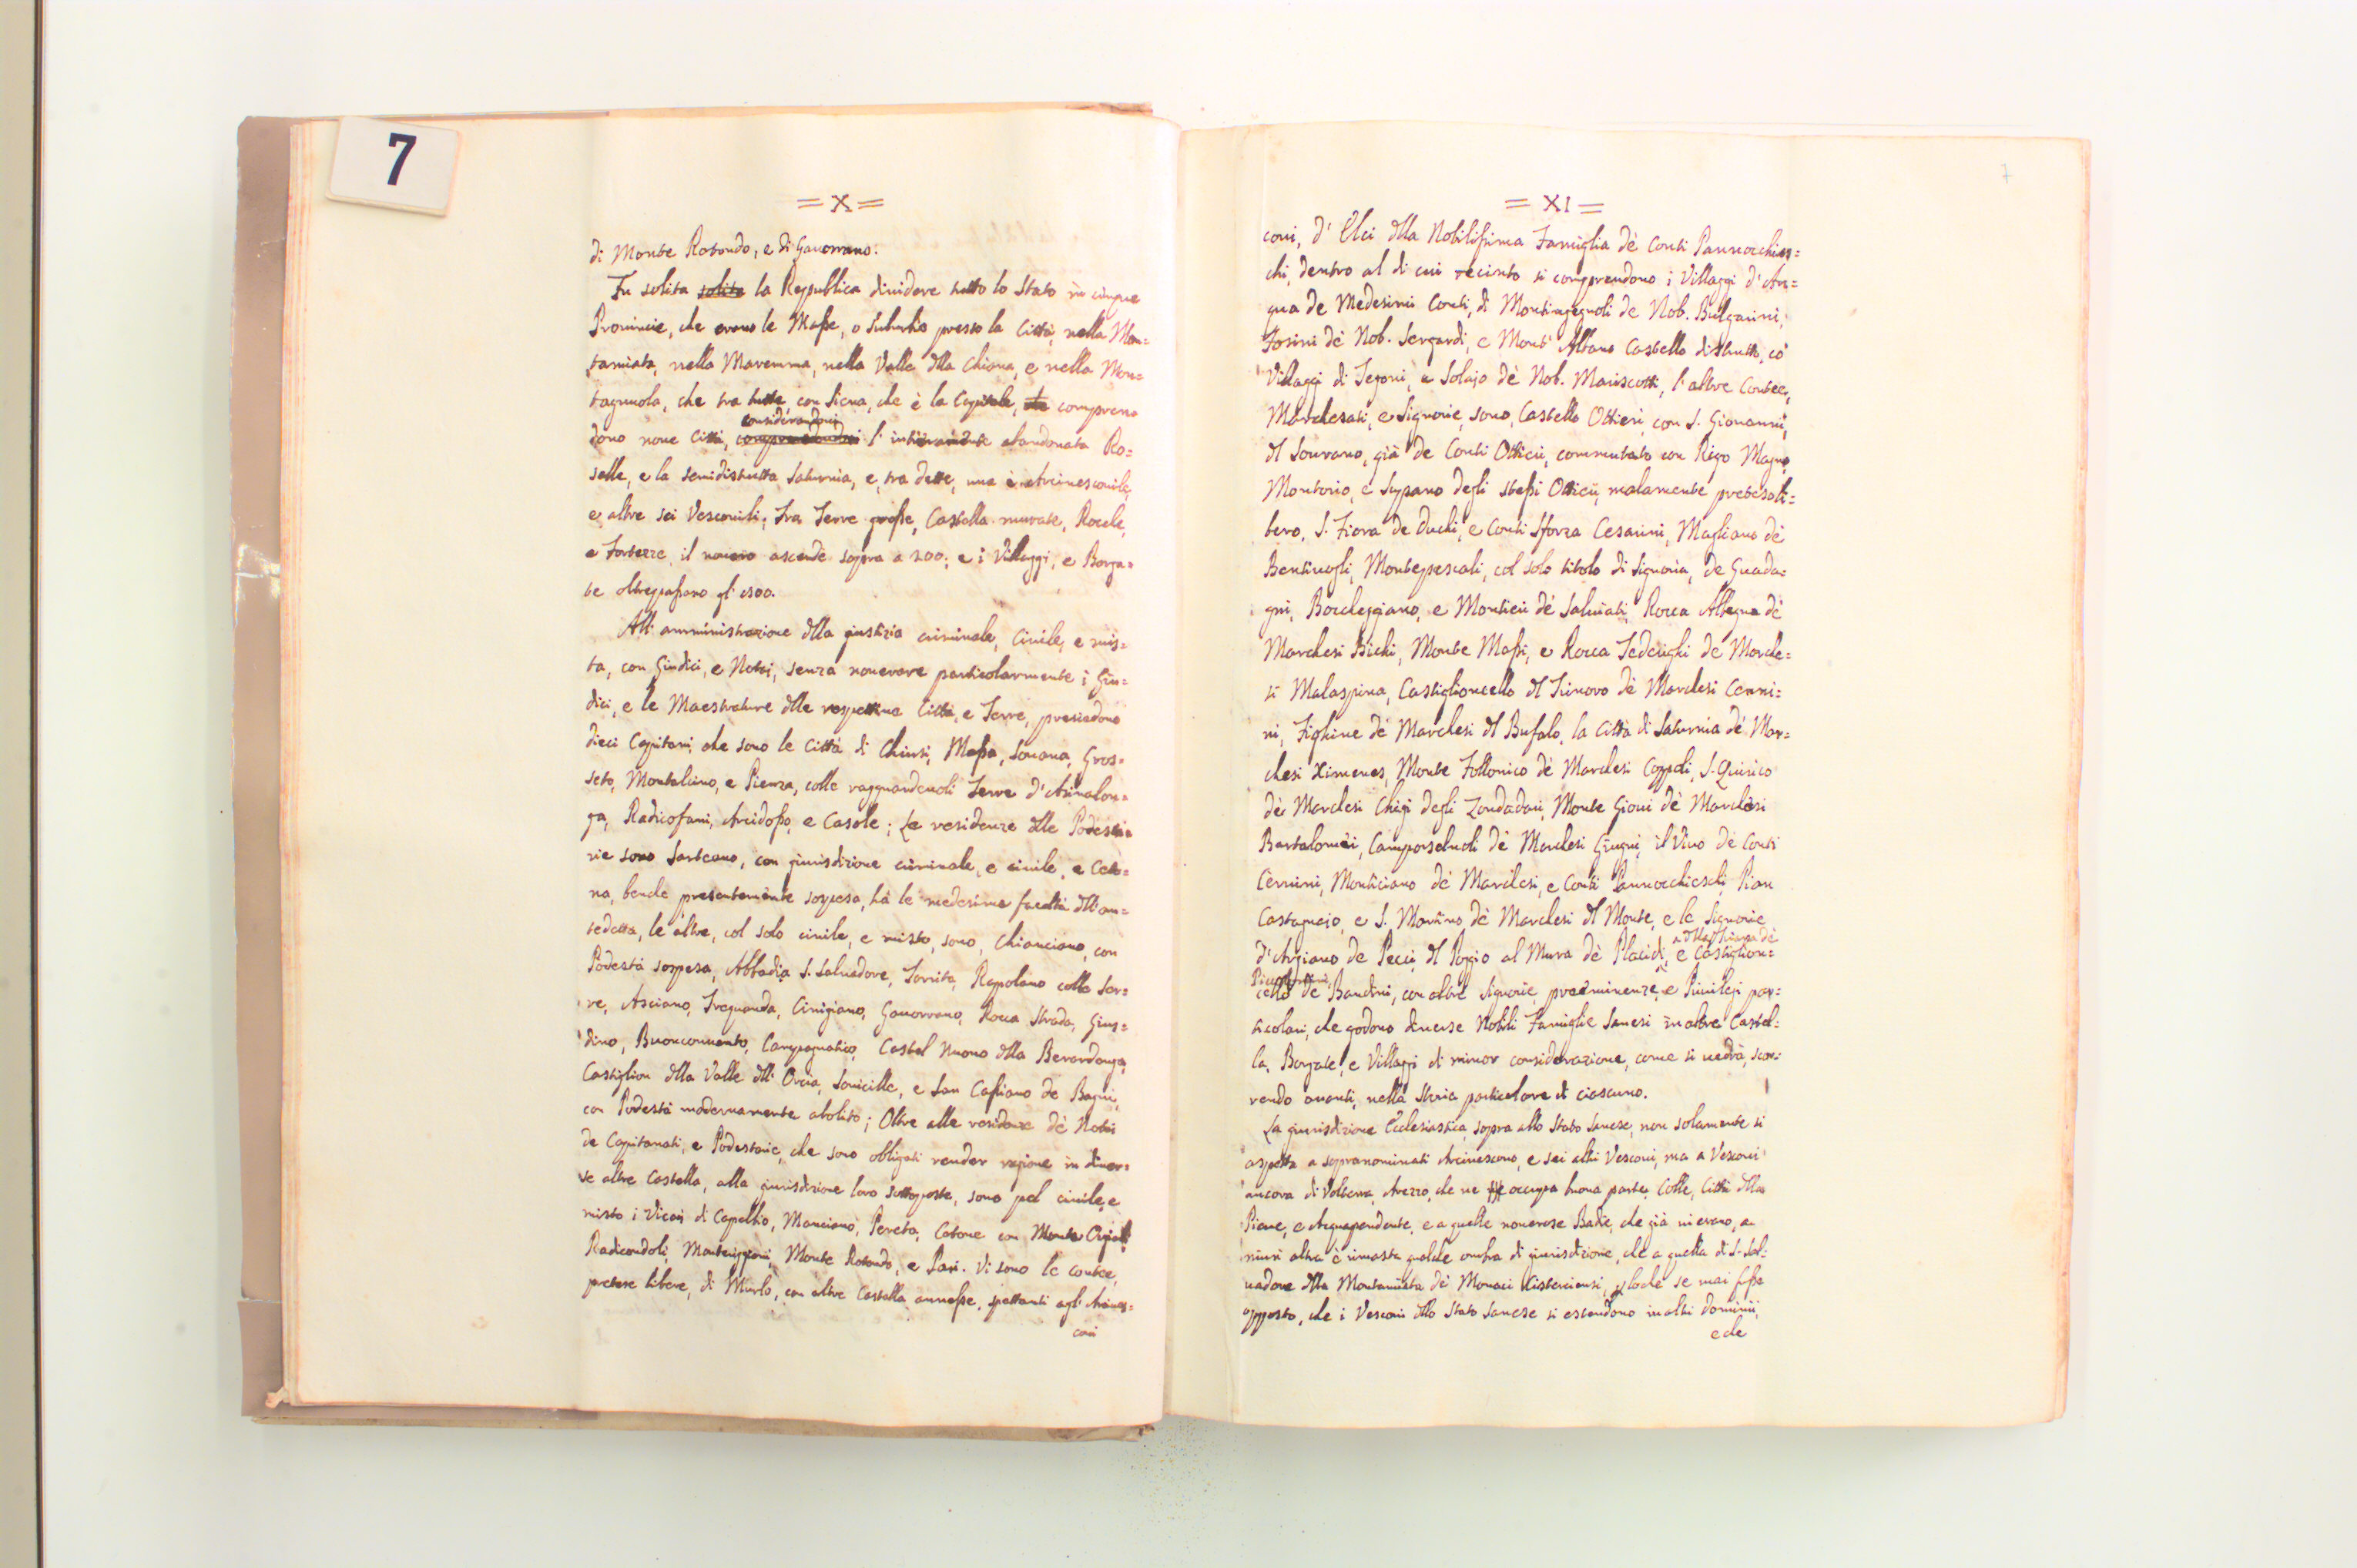 7
= X =
di Monte Rotondo, e di Gavorrano.
Fu solita solita la Republica dividere tutto lo Stato in cinque
Provincie, che erano le Masse, o Suburbio presso la Città, nella Mon=
tamiata, nella Maremma, nella Valle dlla Chiana, e nella Mon=
tagnuola, che tra tutte, con Siena, che è la Capitale, compren=
considerandovi
dono nove Città, l' intieramente abandonata Ro=
selle, e la semidistrutta Saturnia, e, tra dette, una è Arcivescovile,
e altre sei Vescovili; Tra Terre grosse, Castella murate, Rocche,
e Fortezze, il novero ascende sopra a 200; e i Villaggi, e Borga=
te oltrepassano gl' 1500.
All' amministrazione dlla giustizia criminale, Civile, e mis=
ta, con Giudici, e Notai, senza noverare particolarmente i Giu=
dici, e le Maestrature dlle respettive Città, e Terre, presiedono
dieci Capitani, che sono le Città di Chiusi, Massa, Sovana, Gros=
seto, Montalcino, e Pienza, colle ragguardevoli Terre d' Asinalon=
ga, Radicofani, Arcidosso, e Casole; Le residenze dlle Podeste=
rie sono Sarteano, con giurisdizione criminale, e civile, e Ceto=
na, benche presentemente sospesa, hà le medesime facoltà dll' an=
tedetta, le altre, col solo civile, e misto, sono, Chianciano, con
Podestà sospesa, Abbadia S. Salvadore, Torrita, Rapolano colle Ser=
re, Asciano, Trequanda, Cinigiano, Gavorrano, Rocca Strada, Gius=
dino, Buonconvento, Campagnatico, Castel Nuovo dlla Berardenga,
Castiglion dlla Valle dll' Orcia, Sovicille, e San Casciano de Bagni,
con Podestà modernamente abolito; Oltre alle residenze dè Notai
de Capitanati, e Podestarie, che sono obligati render ragione in diver=
se altre Castella, alla giurisdizione loro sottoposte, sono pel civile, e
misto i Vicari di Capalbio, Manciano, Pereta, Cotone con Monte Orgiali
Radicondoli, Monteriggioni, Monte Rotondo, e Pari. Vi sono le contee,
pretese libere, di Murlo, con altre Castella annesse, spettanti agl' Arcives=
covi
7
= XI =
covi, d' Elci dlla Nobilissima Famiglia dè Conti Pannocchies=
chi, dentro al di cui recinto si comprendono i Villaggi d' An=
qua de Medesimi Conti, di Montingegnoli de Nob. Bulgarini,
Fosini dè Nob. Sergardi, e Mont' Albano Castello distrutto, co'
Villaggi di Tegoni, e Solajo dè Nob. Mariscotti, l' altre Contee,
Marchesati, e Signorie, sono, Castello Ottieri con S. Giovanni,
dl Sovrano, già de Conti Ottieri, commutato con Rigo Magno
Montorio, e Sopano degli stessi Ottieri, malamente preteso li=
bero, S. Fiora de Duchi, e Conti Sforza Cesarini, Magliano dè
Bentivogli, Montepescali, col solo titolo di Signoria, de Guada=
gni, Boccheggiano, e Montieri dè Salviati, Rocca Albegna dè
Marchesi Bichi, Monte Massi, e Rocca Tederighi de Marche=
si Malaspina, Castiglioncello dl Trinoro dè Marchesi Cenni=
ni, Fighine dè Marchesi dl Bufalo, la Città di Saturnia dè Mar=
chesi Ximenes, Monte Follonico dè Marchesi Coppoli, S. Quirico
dè Marchesi Chigi degli Zondadari, Monte Giovi dè Marchesi
Bartalomei, Camporsevoli dè Marchesi Giugni, il Vivo dè Conti
Cervini, Monticiano dè Marchesi, e Conti Pannocchieschi, Pian
Castagnajo, e S. Martino dè Marchesi dl Monte, e le Signorie
a dlla Triana dè
d' Argiano de Pecci, dl Poggio al Mura dè Placidi, e Castiglion=
Piccolomini
cello de Bandini, con altre Signorie, preeminenze, e Privilegi par=
ticolari, che godono diverse Nobili Famiglie Sanesi in altre Castel=
la, Borgate, e Villaggi di minor considerazione, come si vedrà, scor=
rendo avanti, nella Storia particolare di ciascuno.
La giurisdizione Ecclesiastica, sopra allo Stato Sanese, non solamente si
aspetta a sopranominati Arcivescovo, e sei altri Vescovi, ma a Vescovi
ancora di Volterra, Arezzo, che ne occupa buona parte, Colle, Città dlla
Pieve, e Acquapendente, e a quelle noverose Badie, che già vi erano, a
niuni altra è rimasta qualche ombra di giurisdizione, che a quella di S. Sal=
vadore dlla Montamiata dè Monaci Cisterciensi, loche se mai fosse
opposto, che i Vescovi dllo Stato Sanese si estendono in altri dominii,
e che